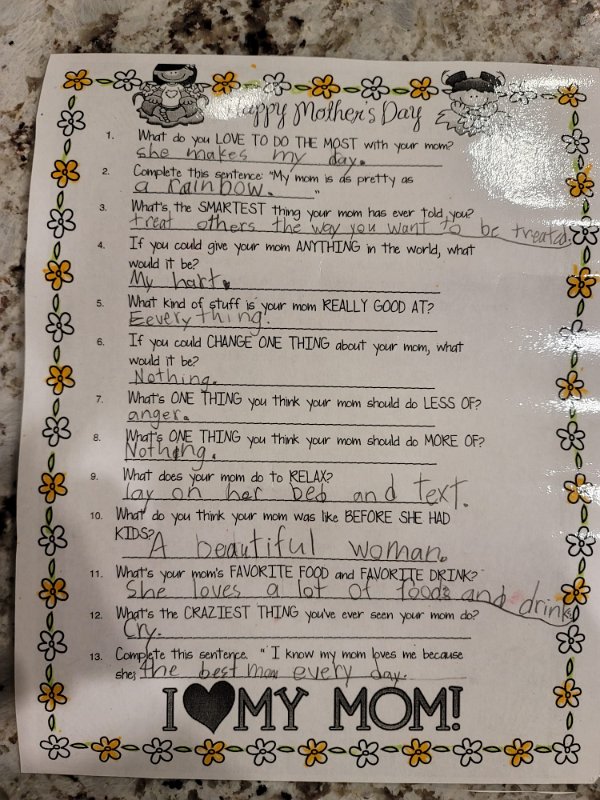 Happy Mother's Day
1. What do you LOVE TO DO THE MOST with your mom?
she makes my day.
2. Complete this sentence: "My mom is as pretty as
a rainbow. "
3. What's the SMARTEST thing your mom has ever told you?
treat others the way you want to be treated.
4. If you could give your mom ANYTHING in the world, what
would it be?
My hart.
5. What kind of stuff is your mom REALLY GOOD AT?
Eeverything.
6. If you could CHANGE ONE THING about your mom, what
would it be?
Nothing.
7. What's ONE THING you think your mom should do LESS OF?
anger.
8. What's ONE THING you think your mom should do MORE OF?
Nothing.
9. What does your mom do to RELAX?
lay on her bed and text.
10. What do you think your mom was like BEFORE SHE HAD
KIDS? A beautiful woman.
11. What's your mom's FAVORITE FOOD and FAVORITE DRINK?
She loves a lot of foods and drinks
12. What's the CRAZIEST THING you've ever seen your mom do?
Cry.
13. Complete this sentence. "I know my mom loves me because
she: the best mom every day.
I ♥ MY MOM!